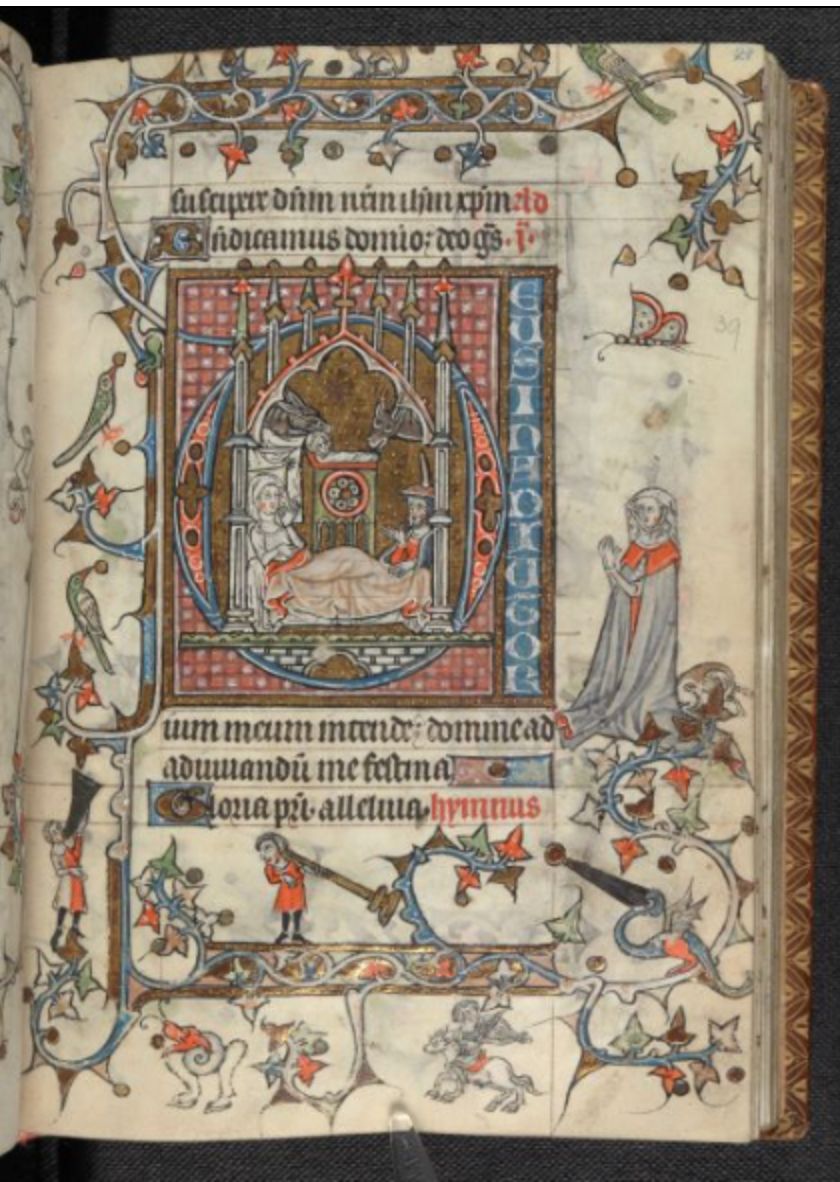 28
suscipere dn̄m nr̄m ihm xp̄m. Ad
Bn̄dicamus domino: deo gr̄s. j.
39
EUS IN ADIUTOR
ium meum intende: domine ad
adiuuandū me festina
Gloria pr̄i. alleluia. hymnus